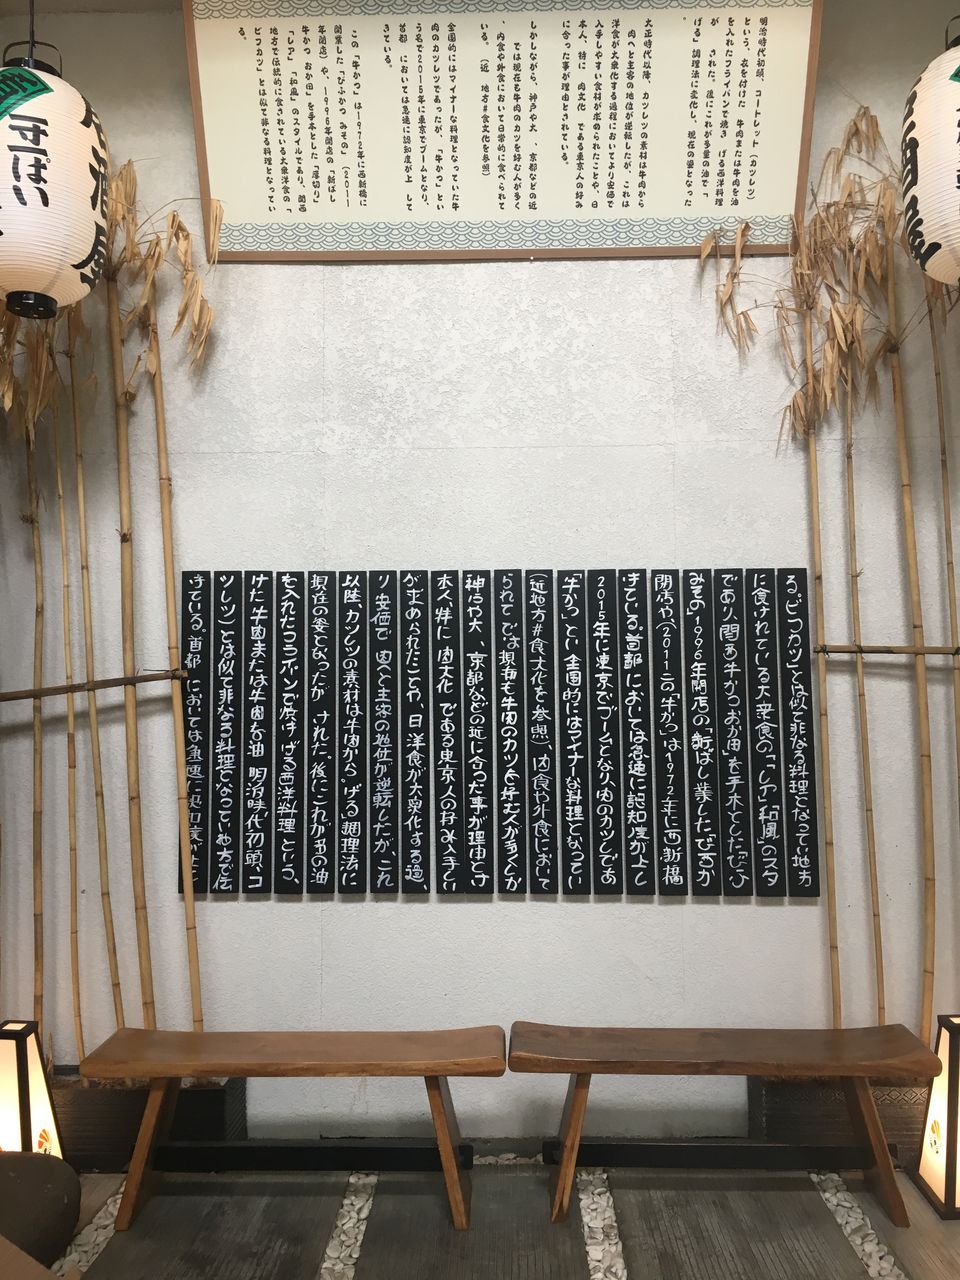 明治時代初頭、コートレット（カツレツ）
という、衣を付けた　牛肉または牛肉を油
を入れたフライパンで焼き　げる西洋料理
が　　された。後にこれが多量の油で「
げる」調理法に変化し、現在の姿となった
。
大正時代以降、カツレツの素材は牛肉から
　肉へと主客の地位が逆転したが、これは
洋食が大衆化する過程においてより安価で
入手しやすい食材が求められたことや、日
本人、特に　肉文化　である東京人の好み
に合った事が理由とされている。
しかしながら、神戸や大　、京都などの近
　では現在も牛肉のカツを好む人が多く
、内食や外食において日常的に食べられて
いる。（近　地方#食文化を参照）
全国的にはマイナーな料理となっていた牛
肉のカツレツであったが、「牛かつ」とい
う名で2015年に東京でブームとなり、
首都　においては急速に認知度が上　して
きている。
この「牛かつ」は1972年に西新橋に
開業した「びふかつ　みその」（2011
年閉店）や、1996年開店の「新ばし
牛かつ　おか田」を手本とした「厚切り」
「レア」「和風」のスタイルであり、関西
地方で伝統的に食されている大衆洋食の「
ビフカツ」とは似て非なる料理となってい
る。
る。ビフカツ」とは似て非なる料理となってい地方
に食けれている大衆食の「「レア」「和風」のスタ
であり、関西牛かつおか田」を手本とした「びふ
みその1996年開店の「新ばし業した「びふか
閉店や、（2011この「牛かつ」は1972年に西新橋
きている。首都　においては急速に認知度が上し
2015年に東京でブームとなり、肉のカツレであ
「牛かつ」とい全国的にはマイナーな料理となってい
（近地方#食文化を参照）、内食や外食において
られてでは現在も牛肉のカツを好む人が多くしか
神戸や大、京都などの近に合った事が理由とけ
本人、特に肉文化　である東京人の好み入手しい
が求められたことや、日洋食が大衆化する過、
り安価で　肉へと主客の地位が逆転したが、これ
以降、カツレツの素材は牛肉から。げる」調理法に
現在の姿となったが　けれた。後にこれが多の油
を入れたフライパンで焼け　げる西洋料理　という、
けた牛肉または牛肉を油　明治時代初頭、コ
ツレツ）とは似て非なる料理となっていや方で伝
きている。首都　においては急速に認知度が上し
守ぱい